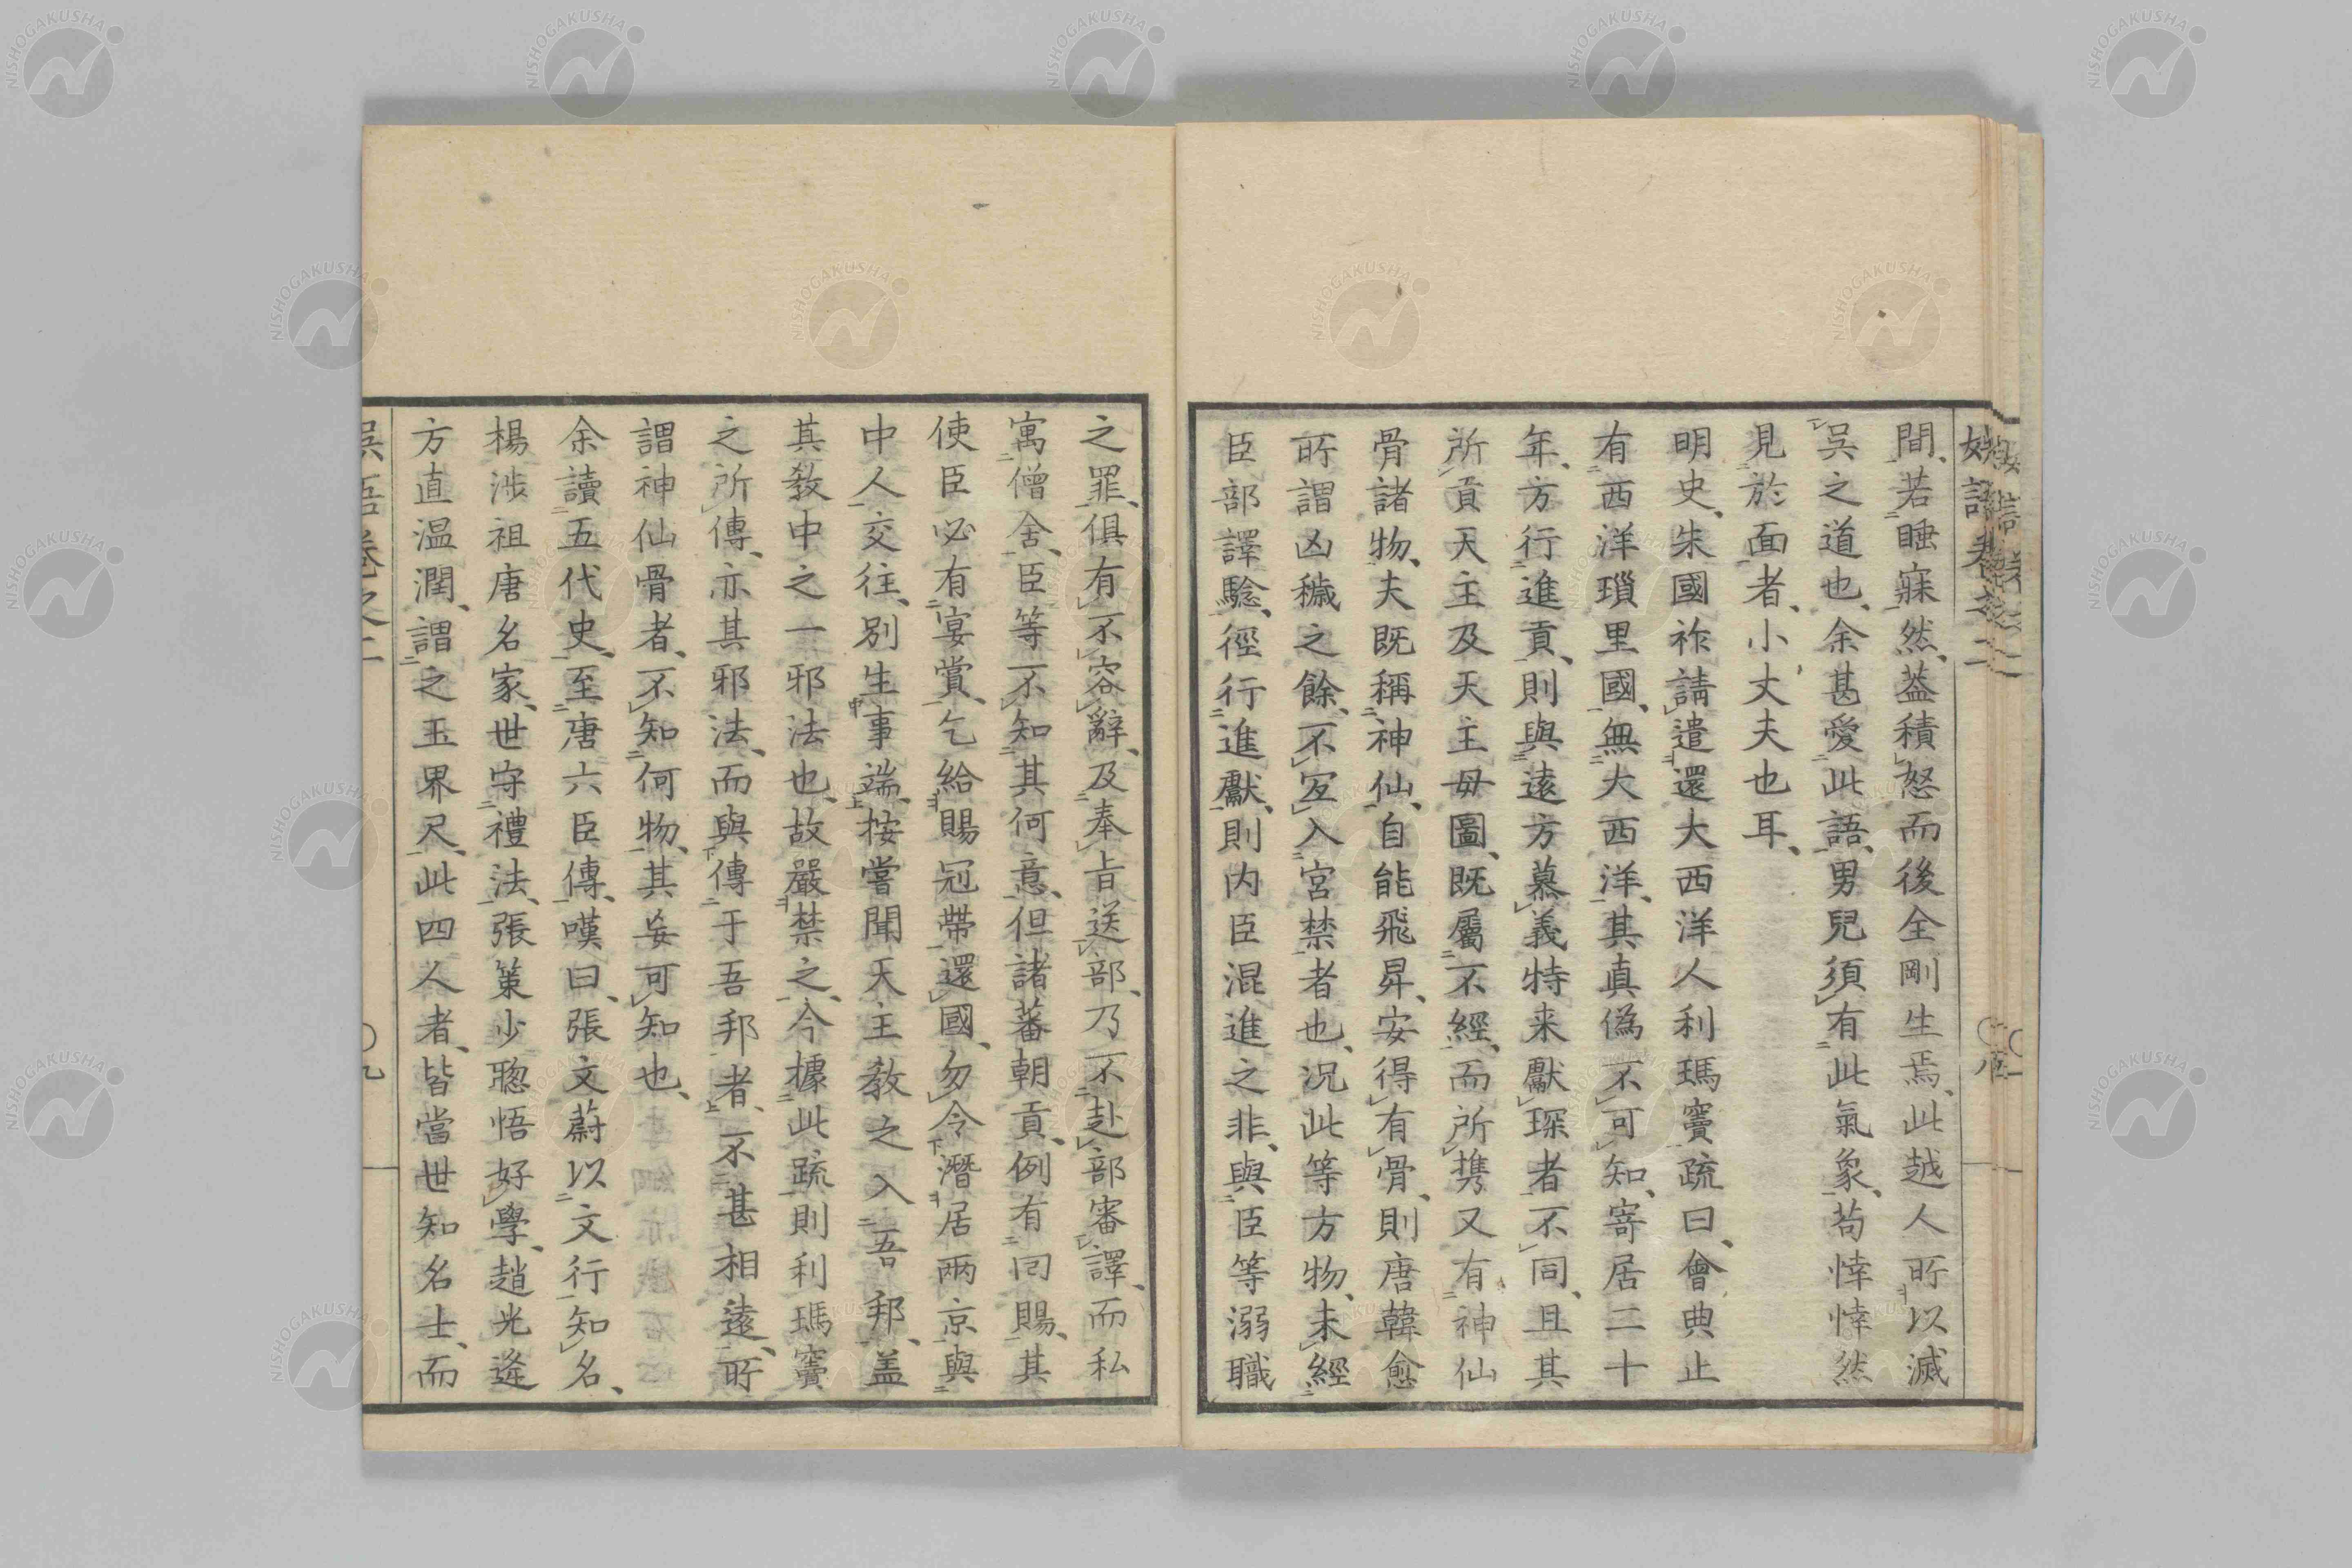 間、若睡寐然、葢積怒而後全剛生焉、此越人所以滅
吳之道也、余甚愛此語、男兒須有此氣象、苟悻悻然
見於面者、小丈夫也耳、
明史、朱國祚請遣還大西洋人利瑪竇疏曰、會典止
有西洋瑣里國、無大西洋、其真偽不可知、寄居二十
年、方行進貢、則與遠方慕義特来獻琛者不同、且其
所貢天主及天主母圖、既屬不經、而所携又有神仙
骨諸物、夫既稱神仙、自能飛昇、安得有骨、則唐韓愈
所謂凶穢之餘、不宜入宮禁者也、況此等方物、未經
臣部譯驗、徑行進獻、則内臣混進之非、與臣等溺職
之罪、俱有不容辭、及奉旨送部、乃不赴部審譯、而私
寓僧舍、臣等不知其何意、但諸蕃朝貢、例有回賜、其
使臣必有宴賞、乞給賜冠帶還國、勿令潛居两京與
中人交往、別生事端、按嘗聞天主教之入吾邦、盖
其教中之一邪法也、故嚴禁之、今據此疏則利瑪竇
之所傳、亦其邪法、而與傳于吾邦者、不甚相遠、所
謂神仙骨者、不知何物、其妄可知也、
余讀五代史、至唐六臣傳、嘆曰、張文蔚以文行知名、
楊涉祖唐名家、世守禮法、張策少聰悟好學、趙光逢
方直温潤、謂之玉界尺、此四人者、皆當世知名士、而
NISHOGAKUSHA